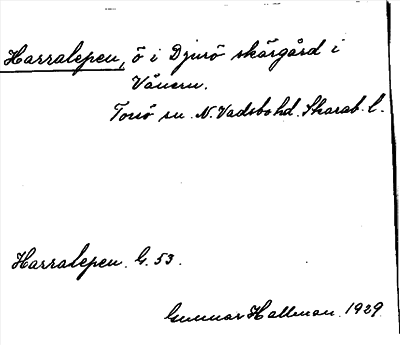 Harralepen, ö i Djurö skärgård i
Vänern.
Torsö sn. N. Vadsbo hd. Skarab. l.
Harralepen. G. 53.
Gunnar Hallman. 1929